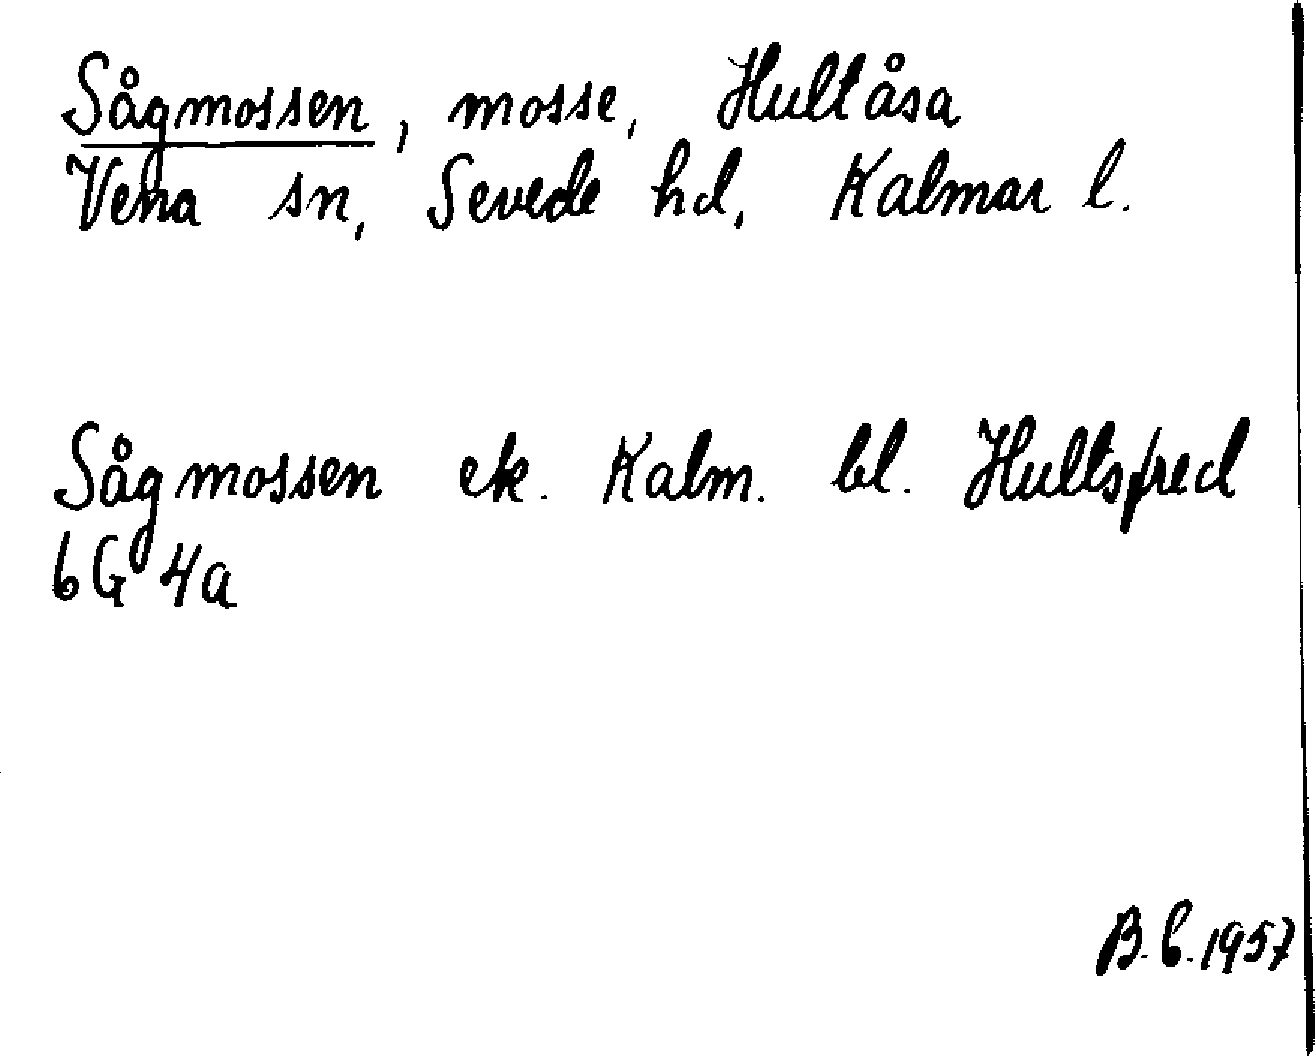 Sågmossen, mosse, Hultåsa
Vena sn, Sevede hd, Kalmar l.
Sågmossen ek. Kalm. bl. Hultsfred
6G 4a
B.b.1957